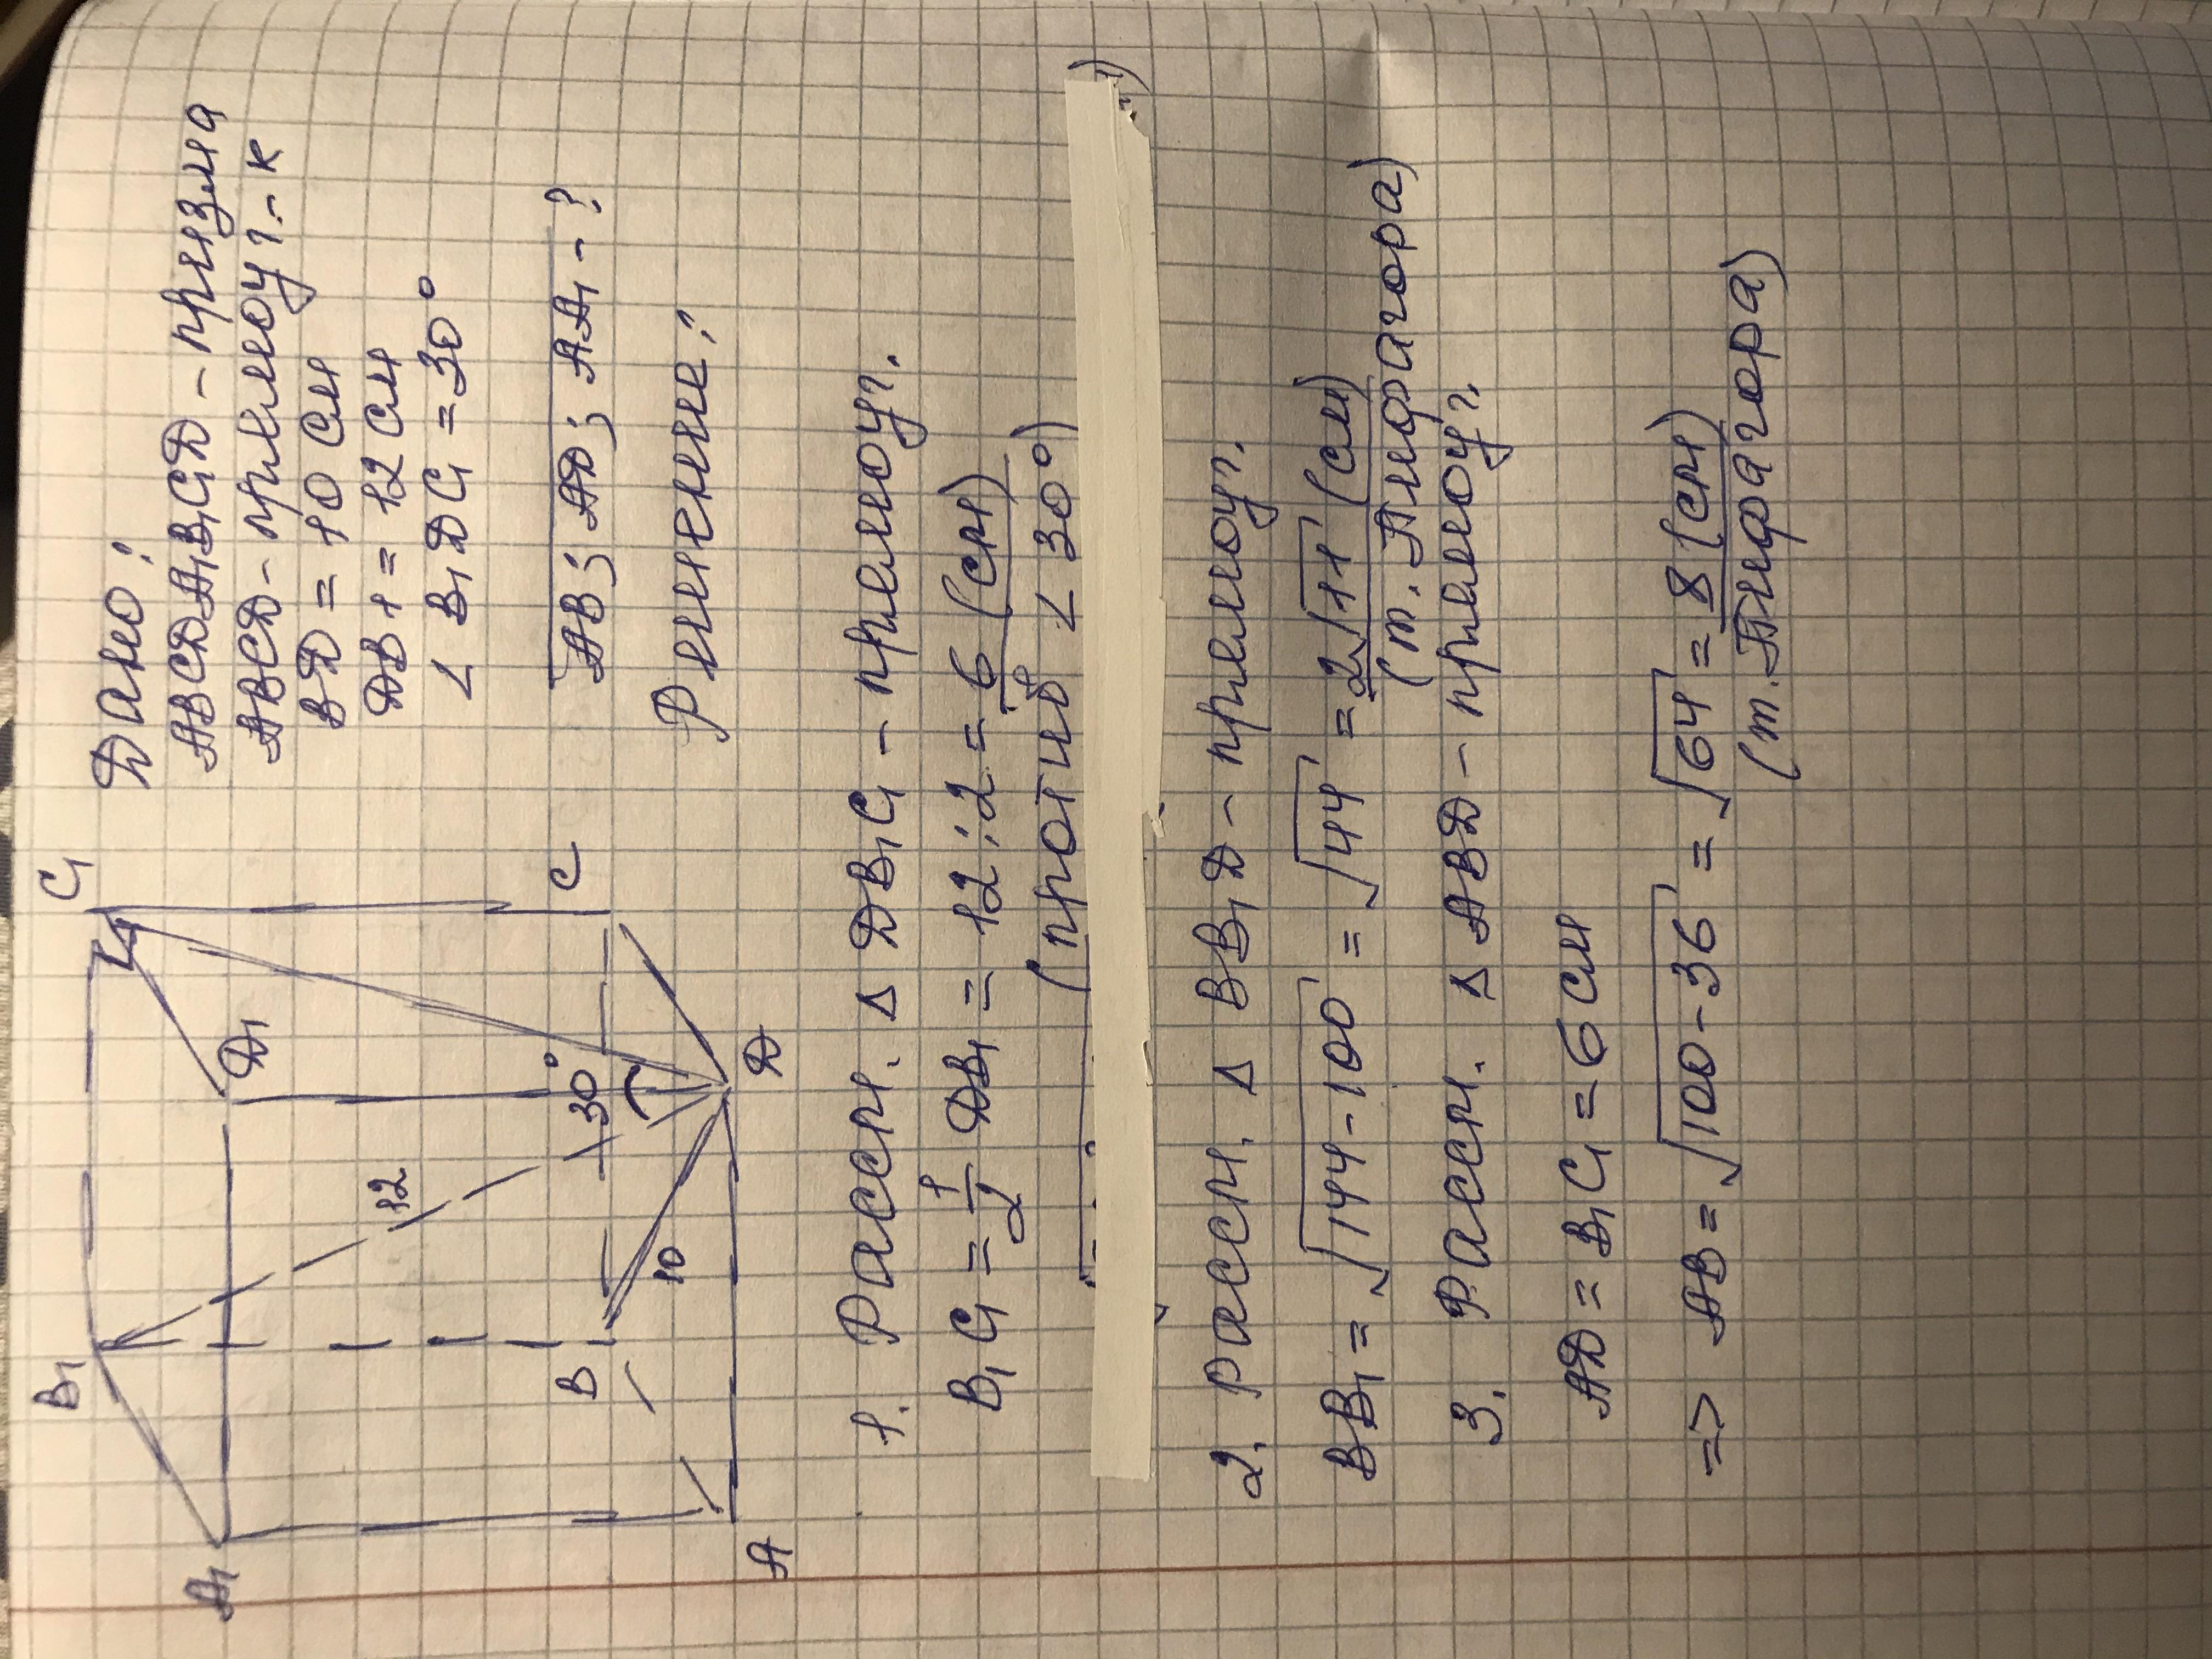 Дано:
ABCDA₁B₁C₁D - призма
ABCD - прямоуг.-к
BD = 10 см
DB1 = 12 см
∠ B₁DC₁ = 30°
AB; AD; AA₁ - ?
Решение:
A₁
B₁
C₁
D₁
12
30°
10
B
C
A
D
1. Рассм. Δ DB₁C₁ - прямоуг.
B₁C₁ = 1/2 DB₁ = 12:2 = 6 (см)
(против ∠ 30°)
2. Рассм. Δ BB₁D - прямоуг.
BB₁ = √144-100 = √44 = 2√11 (см)
(т. Пифагора)
3. Рассм. Δ ABD - прямоуг.
AD = B₁C₁ = 6 см
=> AB = √100-36 = √64 = 8 (см)
(т. Пифагора)